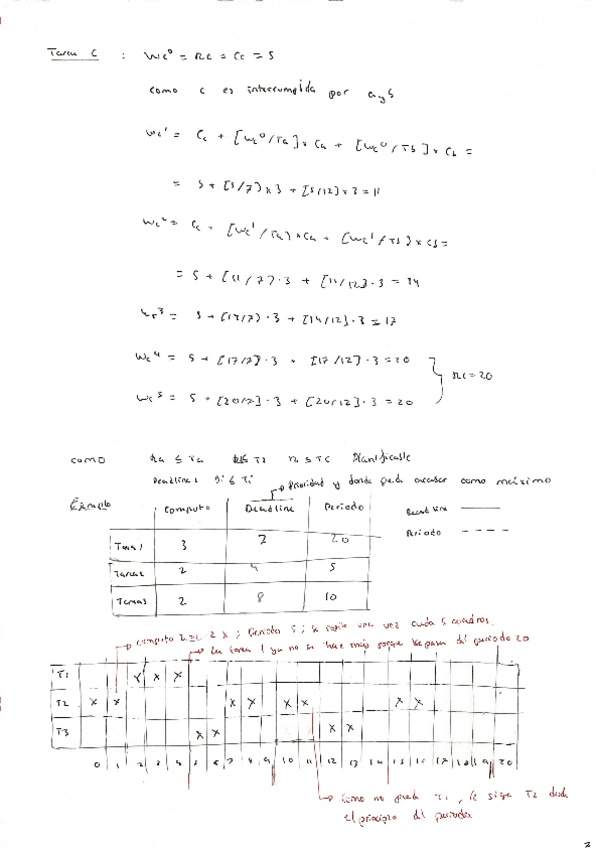 Tarea C : Wc⁰ = Rc = Cc = 5
como c es interrumpida por a y b
Wc¹ = Cc + [Wc⁰/Ta] x Ca + [Wc⁰/Tb] x Cb =
= 5 + [5/7] x 3 + [5/12] x 3 = 11
Wc² = Cc + [Wc¹/Ta] x Ca + [Wc¹/Tb] x Cb =
= 5 + [11/7] · 3 + [11/12] · 3 = 14
Wc³ = 5 + [14/7] · 3 + [14/12] · 3 = 17
Wc⁴ = 5 + [17/7] · 3 + [17/12] · 3 = 20
Rc = 20
Wc⁵ = 5 + [20/7] · 3 + [20/12] · 3 = 20
como Ra ≤ Ta ≤ Tc Planificable
Deadline: Di ≤ Ti
Prioridad y donde puede acabar como máximo
Ejemplo
Computo Deadline Periodo
Deadline ———
Periodo - - - -
Tarea 1 3 7 20
Tarea 2 2 4 5
Tarea 3 2 8 10
computo 2 2 x ; Periodo 5 ; se repite una vez cada 5 cuadros.
La tarea 1 ya no se hace más porque se pasa del periodo 20
T1 x x x
T2 x x x x x x x x
T3 x x x x
0 1 2 3 4 5 6 7 8 9 10 11 12 13 14 15 16 17 18 19 20
como no queda T1, le sigue T2 desde
el principio del periodo